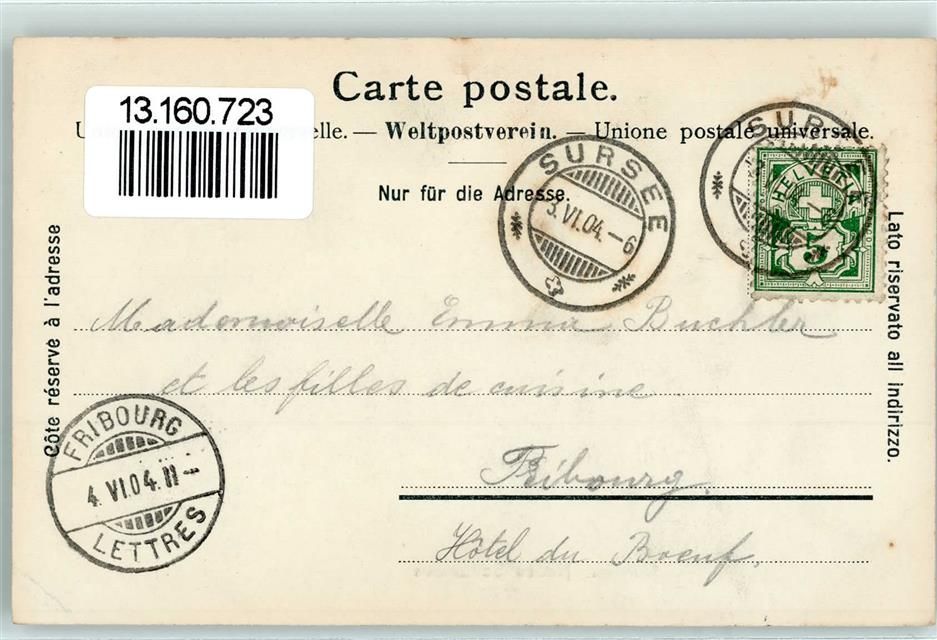 Carte postale.
13.160.723
elle. — Weltpostverein. — Unione postale universale.
Nur für die Adresse.
SURSEE
3.VI.04.–6
SURSEE
HELVETIA
5
Côte réservé à l'adresse
Lato riservato all indirizzo.
Mademoiselle Emma Buchler
et les filles de cuisine
Fribourg.
Hôtel du Boeuf.
FRIBOURG
4.VI.04.11–
LETTRES